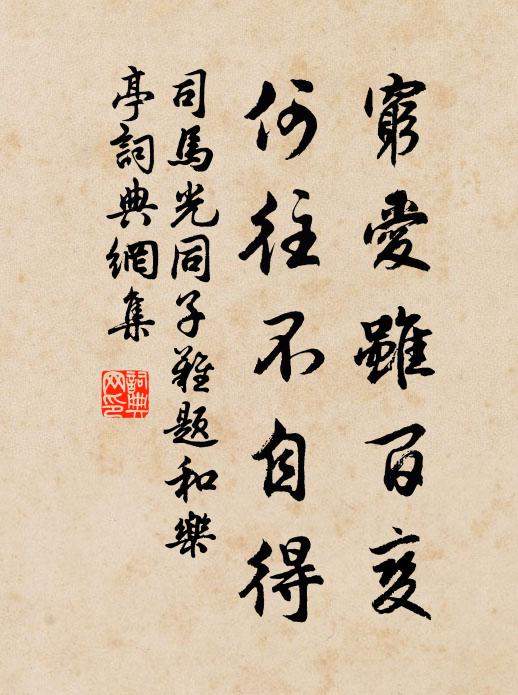 窮愛雖百變
何往不自得
司馬光同子難題和樂
亭詞典網集
詞典
网印